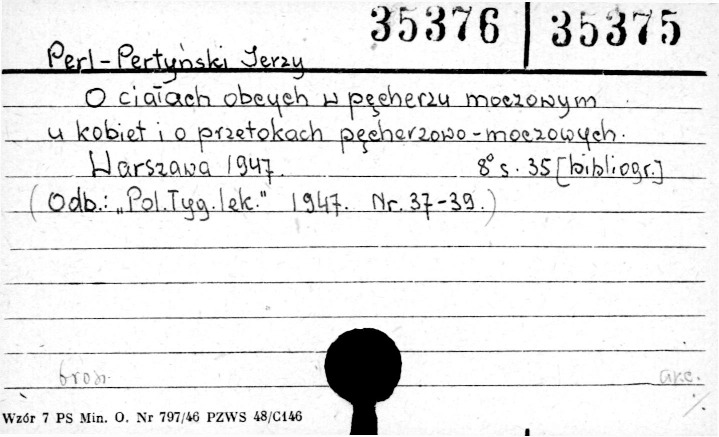 35376 | 35375
Perl-Pertyński Jerzy
O ciałach obcych w pęcherzu moczowym
u kobiet i o przetokach pęcherzowo-moczowych.
Warszawa 1947. 8° s. 35 [bibliogr.]
(Odb.: „Pol.Tyg.lek." 1947. Nr. 37-39.)
brosz. akc.
Wzór 7 PS Min. O. Nr 797/46 PZWS 48/C146